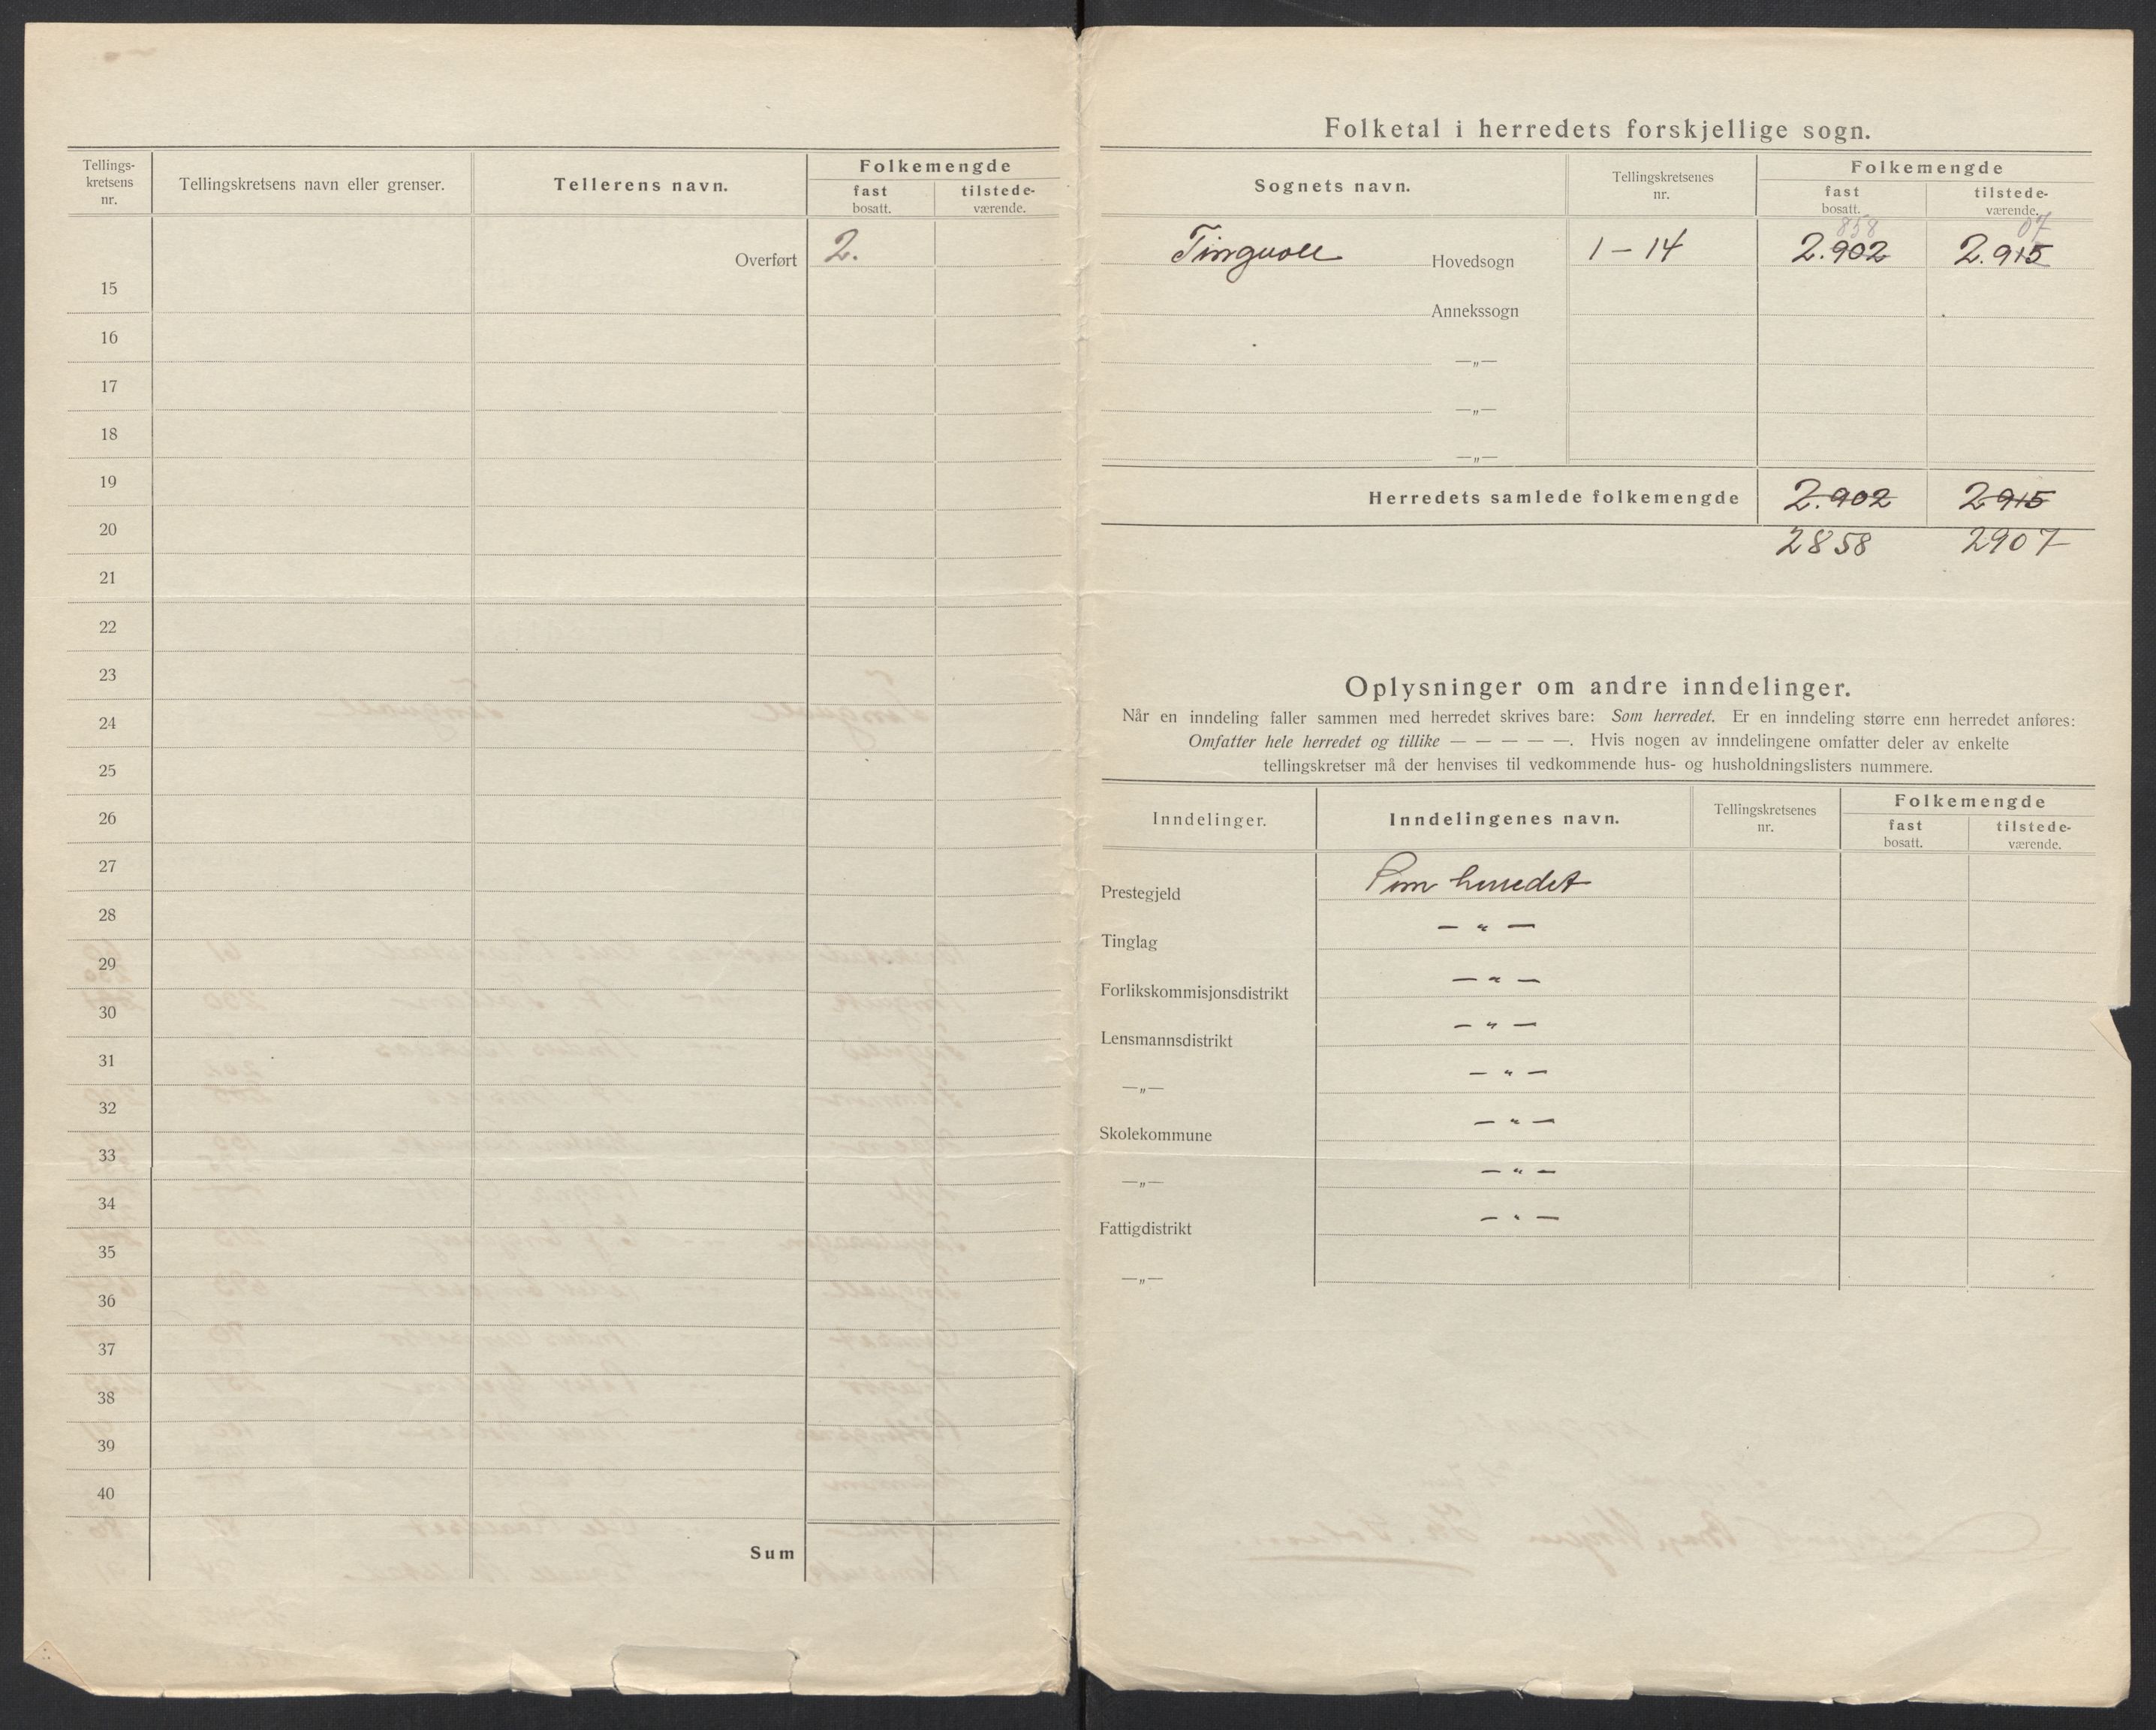 Tellings-
kretsens
nr.
Tellingskretsens navn eller grenser.
Tellerens navn.
Folkemengde
fast
bosatt.
tilstede-
værende.
Overført 2.
15
16
17
18
19
20
21
22
23
24
25
26
27
28
29
30
31
32
33
34
35
36
37
38
39
40
Sum
Folketal i herredets forskjellige sogn.
Sognets navn.
Tellingskretsenes
nr.
Folkemengde
fast
bosatt.
tilstede-
værende.
858 07
Tingvoll Hovedsogn 1 – 14 2.902 2.915
Annekssogn
—„—
—„—
—„—
Herredets samlede folkemengde 2.902 2915
2858 2907
Oplysninger om andre inndelinger.
Når en inndeling faller sammen med herredet skrives bare: Som herredet. Er en inndeling større enn herredet anføres:
Omfatter hele herredet og tillike — — — — —. Hvis nogen av inndelingene omfatter deler av enkelte
tellingskretser må der henvises til vedkommende hus- og husholdningslisters nummere.
Inndelinger.
Inndelingenes navn.
Tellingskretsenes
nr.
Folkemengde
fast
bosatt.
tilstede-
værende.
Prestegjeld Som herredet
Tinglag — „ —
Forlikskommisjonsdistrikt — „ —
Lensmannsdistrikt — „ —
—„— — „ —
Skolekommune — „ —
—„— — „ —
Fattigdistrikt — „ —
—„—